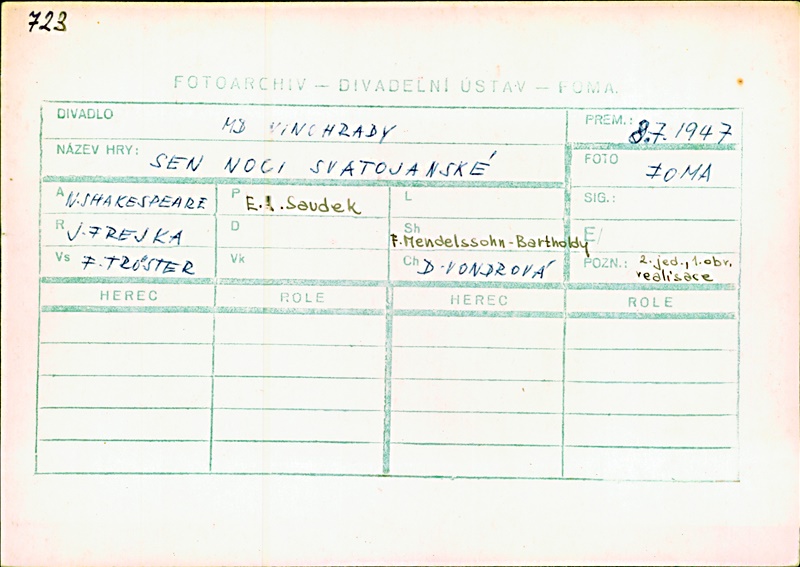 723
FOTOARCHIV — DIVADELNÍ ÚSTAV — FOMA.
DIVADLO MD VINOHRADY PREM.: 8.7.1947
NÁZEV HRY: SEN NOCI SVATOJANSKÉ FOTO FOMA
A W.SHAKESPEARE P E.A. Saudek L SIG.:
R J.FREJKA D Sh F.Mendelssohn-Bartholdy F/
Vs F.TRÖSTER Vk Ch D.VONDROVÁ POZN.: 2.jed., 1.obr.
realisace
HEREC ROLE HEREC ROLE